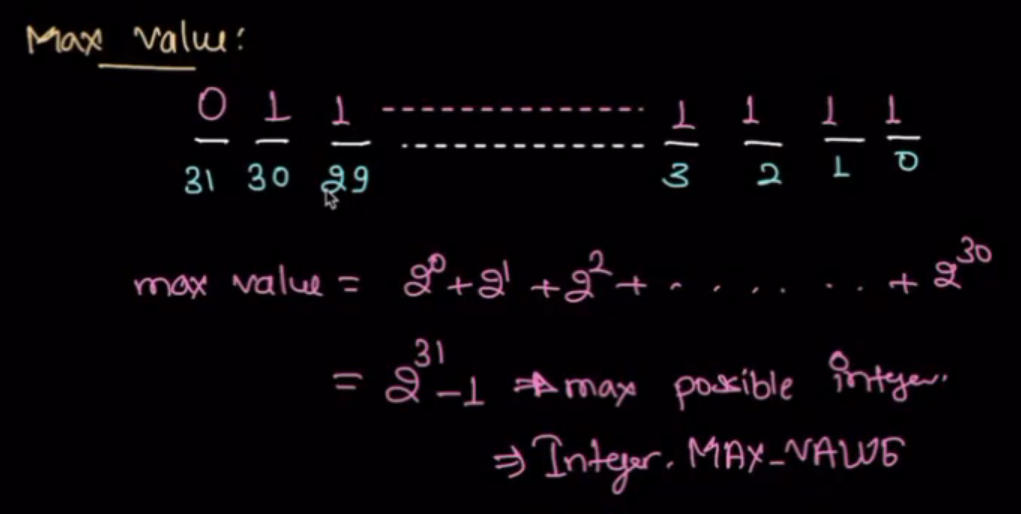 Max Value:
0 1 1 ---------------- 1 1 1 1
31 30 29 ---------------- 3 2 1 0
max value = 2⁰ + 2¹ + 2² + . . . . . . . + 2³⁰
= 2³¹ - 1 ⇒ max possible integer.
⇒ Integer. MAX_VALUE